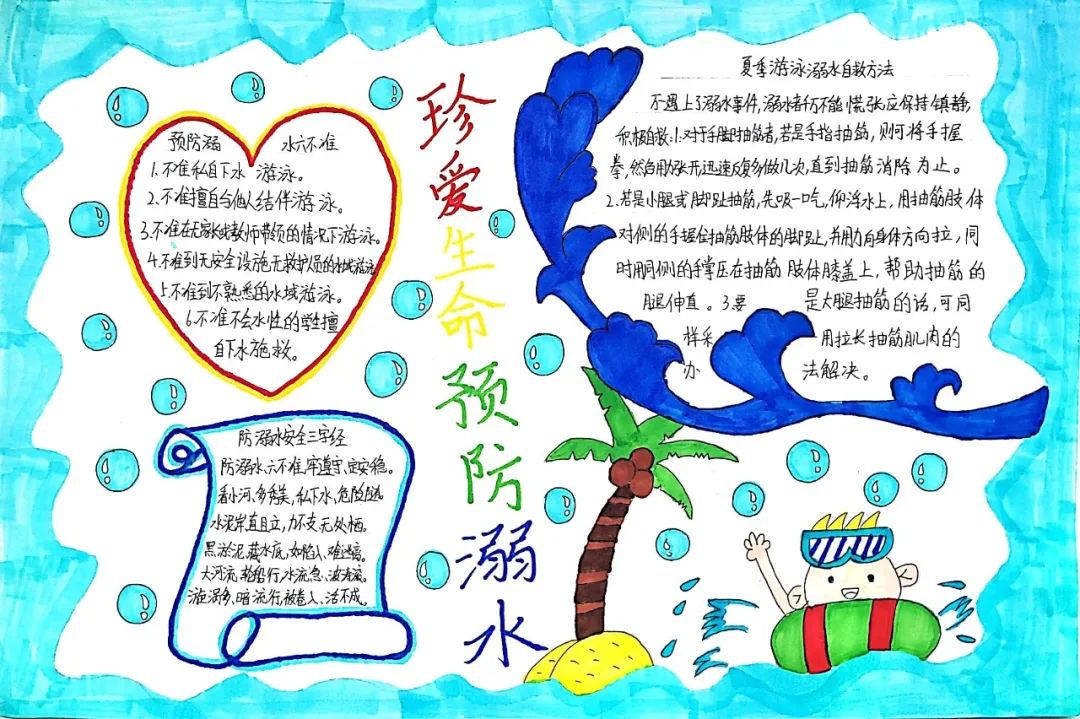 珍爱生命预防溺水
预防溺 水六不准
1.不准私自下水 游泳。
2.不准擅自与他人结伴游泳。
3.不准在无家长或教师带领的情况下游泳。
4.不准到无安全设施无救护员的水域游泳
5.不准到不熟悉的水域游泳。
6.不准不会水性的学生擅
自下水施救。
防溺水安全三字经
防溺水,六不准,牢遵守、定安稳。
看小河、多秀美,私下水,危险随
水泥岸,直且立,力不支,无处栖。
黑淤泥,藏水底,如陷入、难逃离。
大河流,轮船行,水流急、
漩涡多、暗流行,被卷入、活不成。
夏季游泳溺水自救方法
不遇上了溺水事件,溺水者千万不能慌张,应保持镇静,
积极自救:1.对于手脚抽筋者,若是手指抽筋,则可将手握
拳,然后用力张开,迅速反复多做几次,直到抽筋消除为止。
2.若是小腿或脚趾抽筋,先吸一口气,仰浮水上,用抽筋肢体
对侧的手握住抽筋肢体的脚趾,并用力向身体方向拉,同
时用同侧的手掌压在抽筋肢体膝盖上,帮助抽筋的
腿伸直。3.要 是大腿抽筋的话,可同
样采 用拉长抽筋肌肉的
办 法解决。